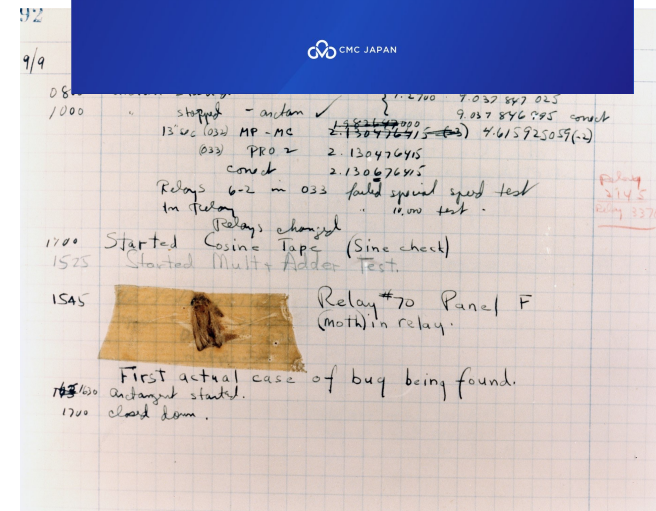 92
CMC JAPAN
9/9
1.2700 9.037 847 025
1000 " stopped - arctan ✓ 9.037 846 995 conect
13"uc (032) MP-MC 2.130476415 4.615925059(-2)
(033) PRO 2 2.130476415
conect 2.130676415
Relays 6-2 in 033 failed special speed test
In Relay " 10,000 test.
Relays changed
Relay
3145
Relay 3370
1700 Started Cosine Tape (Sine check)
1525 Started Mult+Adder Test.
1545 Relay #70 Panel F
(moth) in relay.
First actual case of bug being found.
1630 arctangent started.
1700 closed down.